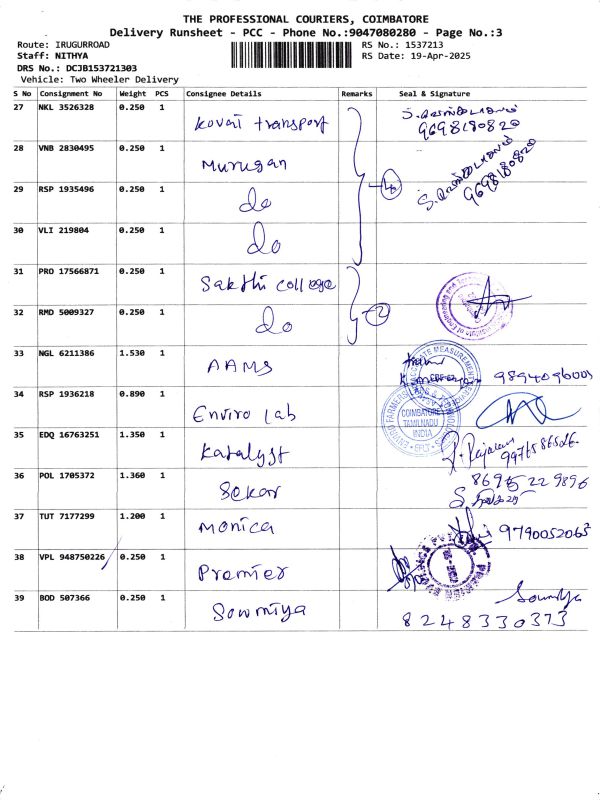 THE PROFESSIONAL COURIERS, COIMBATORE
Delivery Runsheet - PCC - Phone No.:9047080280 - Page No.:3
Route: IRUGURROAD
RS No.: 1537213
Staff: NITHYA
RS Date: 19-Apr-2025
DRS No.: DCJB153721303
Vehicle: Two Wheeler Delivery
S No Consignment No Weight PCS Consignee Details Remarks Seal & Signature
27 NKL 3526328 0.250 1 Kovai transport 9698180820
28 VNB 2830495 0.250 1 Murugan 9698180820
29 RSP 1935496 0.250 1 do 4
30 VLI 219804 0.250 1 do
31 PRO 17566871 0.250 1 Sakthi college
32 RMD 5009327 0.250 1 do 2
33 NGL 6211386 1.530 1 AAMS
34 RSP 1936218 0.890 1 Enviro lab COIMBATORE TAMILNADU INDIA
35 EDQ 16763251 1.350 1 Katalyst
36 POL 1705372 1.360 1 Sekar
37 TUT 7177299 1.200 1 Monica
38 VPL 948750226 0.250 1 Premier
39 BOD 507366 0.250 1 Sowmiya Sowmiya
8248330373